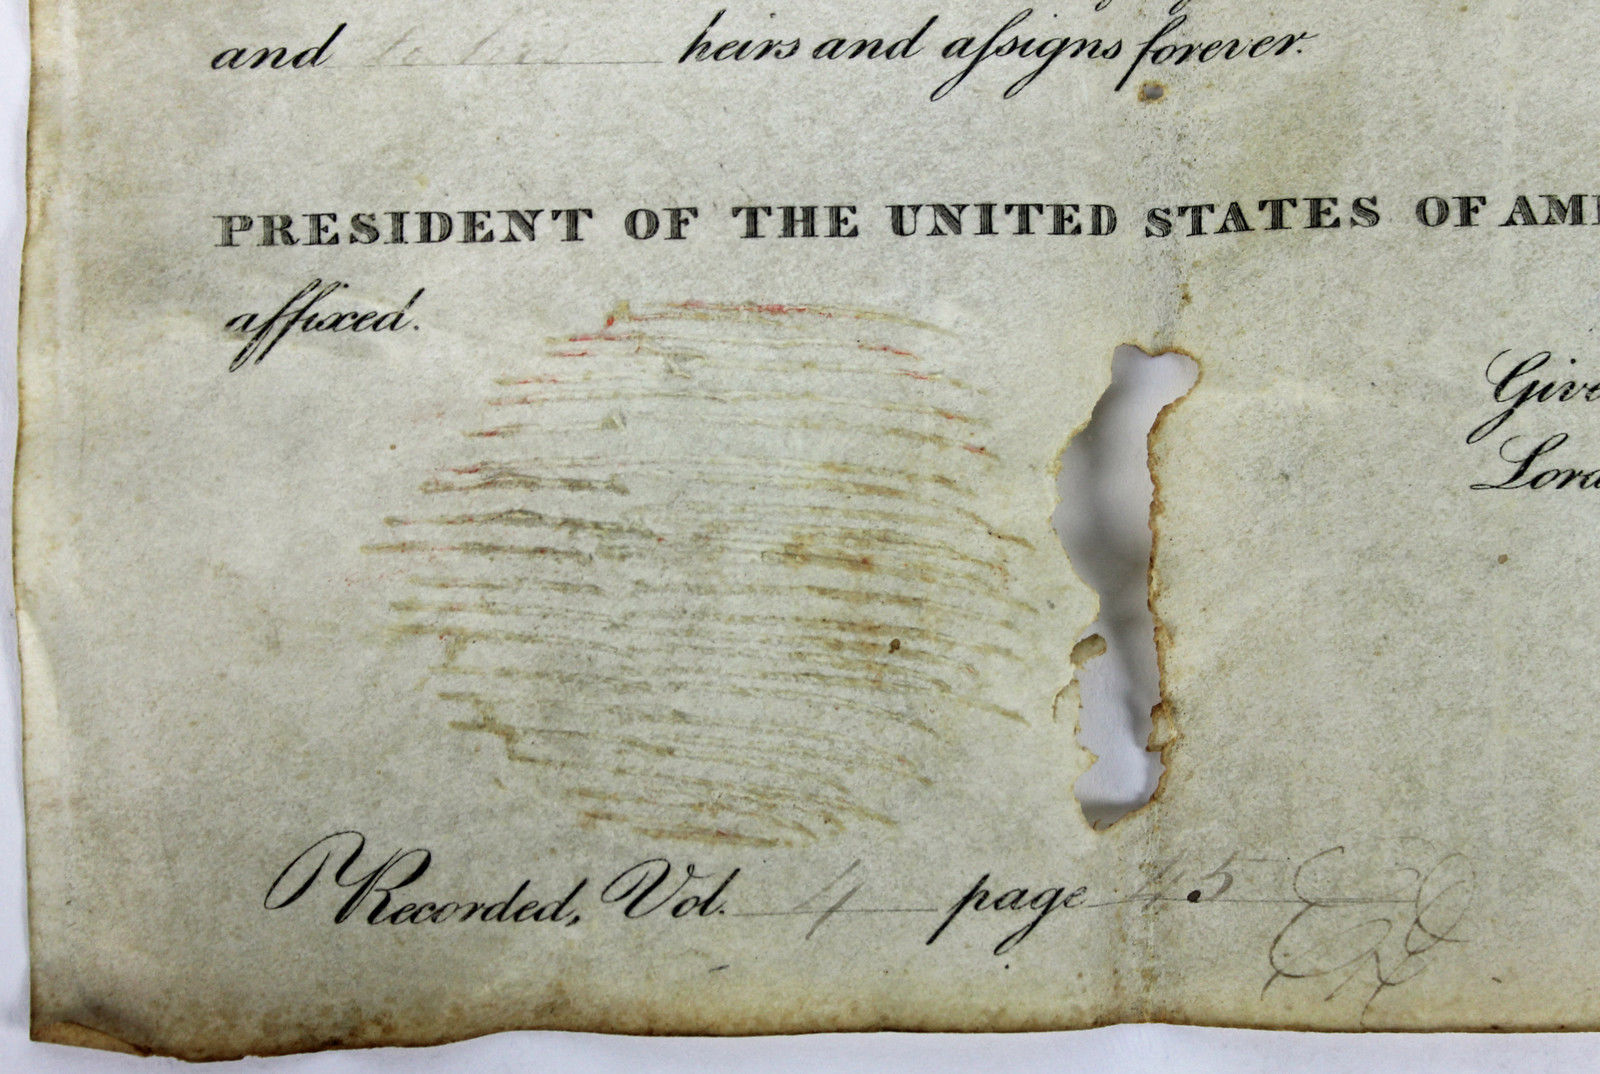 and to his heirs and aſsigns forever.
PRESIDENT OF THE UNITED STATES OF AM
affixed.
Give
Lord
Recorded, Vol. 4 page 45